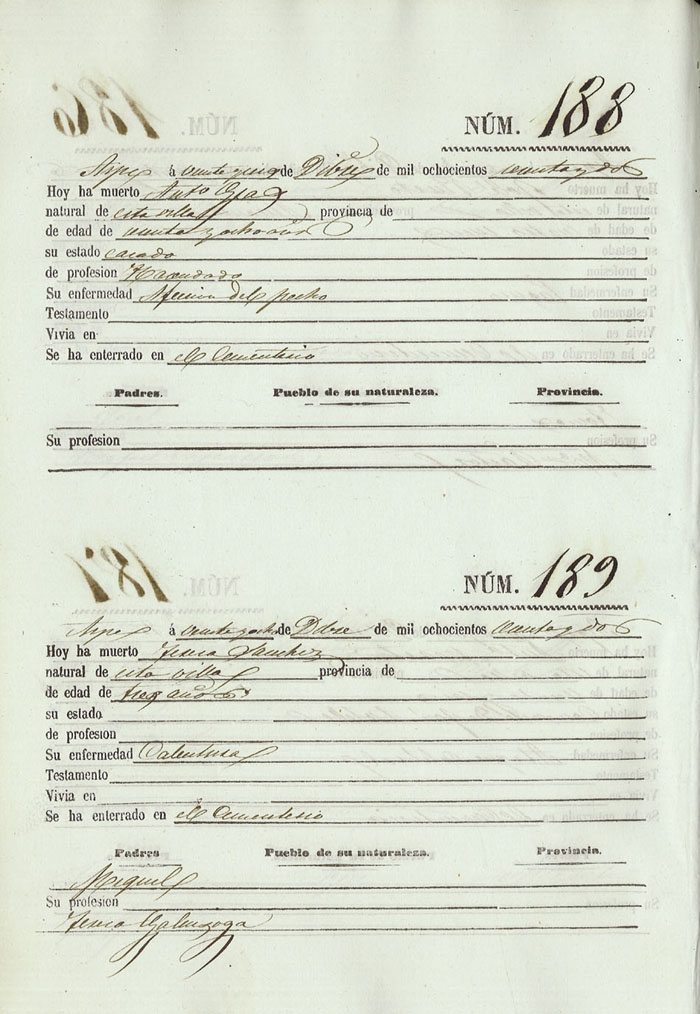 NÚM. 188
Aspe á veinte y seis de Dibre de mil ochocientos cuarenta y dos
Hoy ha muerto Anto
natural de esta villa provincia de
de edad de y ocho años
su estado casado
de profesion Hacendado
Su enfermedad del pecho
Testamento
Vivia en
Se ha enterrado en el Cementerio
Padres. Pueblo de su naturaleza. Provincia.
Su profesion
NÚM. 189
Aspe á veinte y ocho de Dbre de mil ochocientos cuarenta y dos
Hoy ha muerto Sanchez
natural de esta villa provincia de
de edad de tres años
su estado
de profesion
Su enfermedad Calentura
Testamento
Vivia en
Se ha enterrado en el Cementerio
Padres Pueblo de su naturaleza. Provincia.
Miguel
Su profesion
Galinsoga